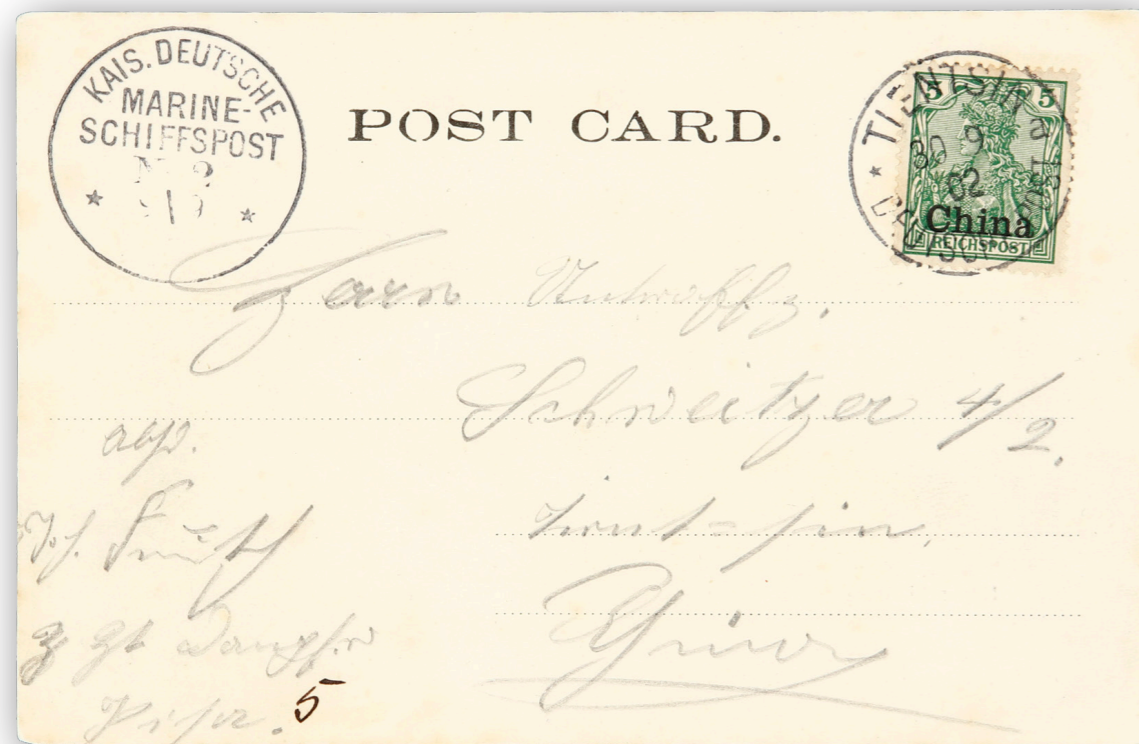 KAIS. DEUTSCHE
MARINE-
SCHIFFSPOST
No 2
POST CARD.
TIENTSIN a
30 9
02
DEUTSCHE POST
5 5
China
REICHSPOST
Herrn
Schweitzer 4/2.
Tient=sin,
China
abs.
z Zt Dampfer
5